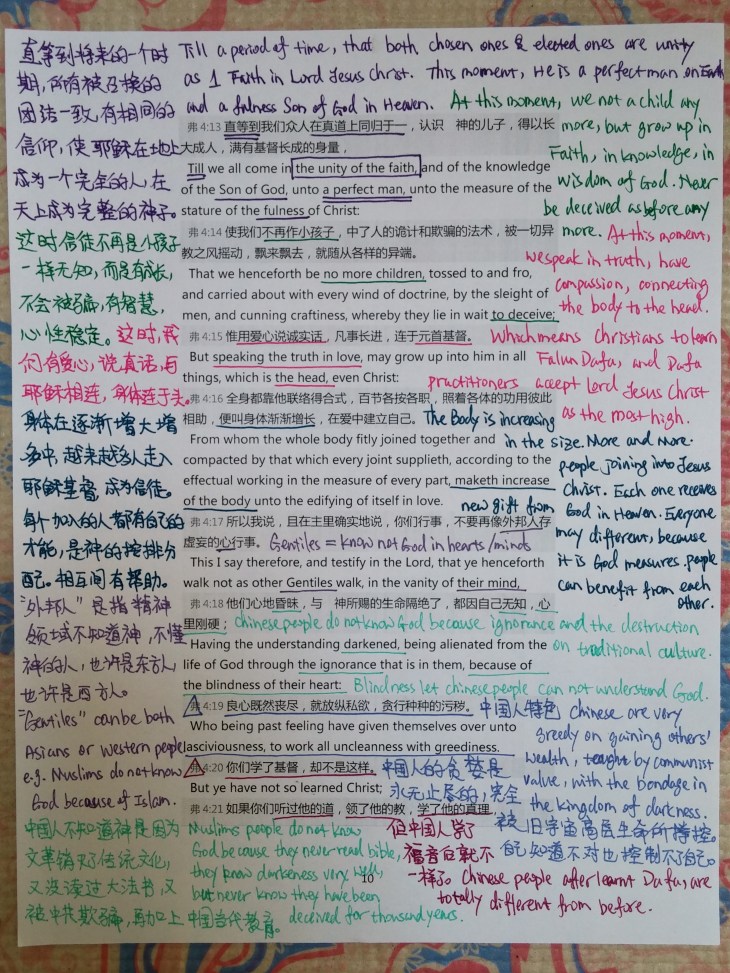 直等到将来的一个时
期，所有被召换的
团结一致，有相同的
信仰，使耶稣在地上
成为一个完全的人，在
天上成为完整的神子。
这时信徒不再是小孩子
一样无知，而是有成长，
不会被骗，有智慧，
心性稳定。这时，我
们有爱心，说真话，与
耶稣相连，身体连于头。
身体在逐渐增大增
多中，越来越多人走入
耶稣基督，成为信徒。
每个加入的人都有自己的
才能，是神的安排分
配。相互间有帮助。
"外邦人"是指精神
领域不知道神，不懂
神的人，也许是东方人，
也许是西方人。
"Gentiles" can be both
Asians or western people
e.g. Muslims do not know
God because of Islam.
中国人不知道神是因为
文革销灭了传统文化，
又没读过大法书，又
被中共欺骗，再加上中国当代教育。
Till a period of time, that both chosen ones & elected ones are unity
as 1 Faith in Lord Jesus Christ. This moment, He is a perfect man on Earth
and a fulness Son of God in Heaven. At this moment, we not a child any
more, but grow up in
Faith, in knowledge, in
wisdom of God. Never
be deceived as before any
more. At this moment,
we speak in truth, have
compassion, connecting
the body to the head.
Which means Christians to learn
Falun Dafa, and Dafa
practitioners accept Lord Jesus Christ
as the most high.
弗 4:13 直等到我们众人在真道上同归于一，认识 神的儿子，得以长
大成人，满有基督长成的身量，
Till we all come in the unity of the faith, and of the knowledge
of the Son of God, unto a perfect man, unto the measure of the
stature of the fulness of Christ:
弗 4:14 使我们不再作小孩子，中了人的诡计和欺骗的法术，被一切异
教之风摇动，飘来飘去，就随从各样的异端。
That we henceforth be no more children, tossed to and fro,
and carried about with every wind of doctrine, by the sleight of
men, and cunning craftiness, whereby they lie in wait to deceive;
弗 4:15 惟用爱心说诚实话，凡事长进，连于元首基督。
But speaking the truth in love, may grow up into him in all
things, which is the head, even Christ:
弗 4:16 全身都靠他联络得合式，百节各按各职，照着各体的功用彼此
相助，便叫身体渐渐增长，在爱中建立自己。
From whom the whole body fitly joined together and
compacted by that which every joint supplieth, according to the
effectual working in the measure of every part, maketh increase
of the body unto the edifying of itself in love.
The Body is increasing
in the size. More and more
people joining into Jesus
Christ. Each one receives
new gift from God in Heaven. Everyone
may different, because
it is God measures. people
can benefit from each
other.
弗 4:17 所以我说，且在主里确实地说，你们行事，不要再像外邦人存
虚妄的心行事。 Gentiles = know not God in hearts/minds
This I say therefore, and testify in the Lord, that ye henceforth
walk not as other Gentiles walk, in the vanity of their mind,
弗 4:18 他们心地昏昧，与 神所赐的生命隔绝了，都因自己无知，心
里刚硬； Chinese people do not know God because ignorance and the destruction
on traditional culture.
Having the understanding darkened, being alienated from the
life of God through the ignorance that is in them, because of
the blindness of their heart: Blindness let chinese people can not understand God.
弗 4:19 良心既然丧尽，就放纵私欲，贪行种种的污秽。
Who being past feeling have given themselves over unto
lasciviousness, to work all uncleanness with greediness.
中国人特色 Chinese are very
greedy on gaining others'
wealth, taught by communist
value, with the bondage in
the kingdom of darkness.
弗 4:20 你们学了基督，却不是这样。
But ye have not so learned Christ;
中国人的贪婪是
永无止尽的，完全
被旧宇宙高层生命所控控。
自己知道不对也控制不了自己。
弗 4:21 如果你们听过他的道，领了他的教，学了他的真理，
Muslims people do not know
God because they never read bible,
they know darkness very well,
but never know they have been
deceived for thousand years.
但中国人学了
福音后就不
一样了。Chinese people after learnt Dafa, are
totally different from before.
10